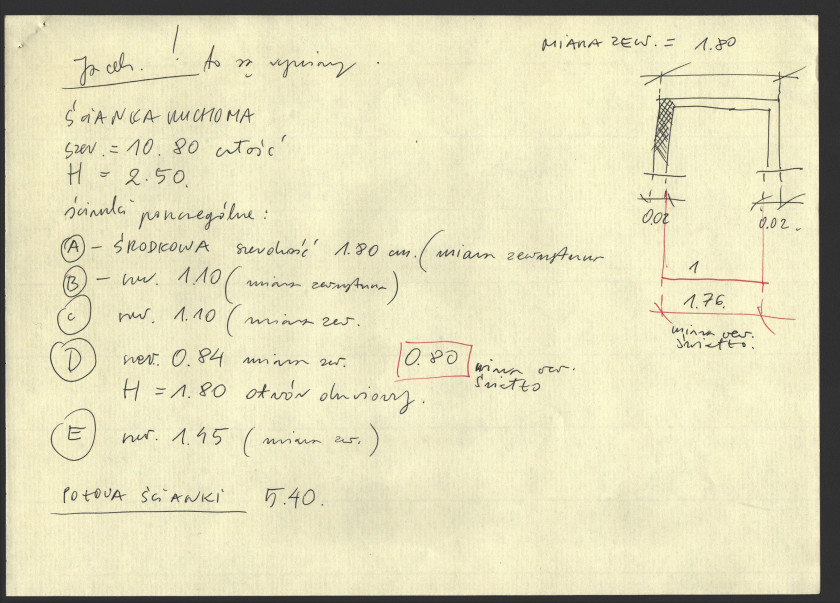 Jacek. ! to są wymiary.
MIARA ZEW. = 1.80
ŚCIANKA RUCHOMA
szer. = 10.80 całość
H = 2.50.
ścianki poszczególne:
A – ŚRODKOWA szerokość 1.80 cm. (miara zewnętrzna
B – szer. 1.10 (miara zewnętrzna)
C szer. 1.10 (miara zew.
D szer. 0.84 miara zew. 0.80 miara wew. światło
H = 1.80 otwór drzwiowy.
E szer. 1.45 (miara zew.)
POŁOWA ŚCIANKI 5.40.
0.02 0.02.
1
1.76.
miara wew.
światło.